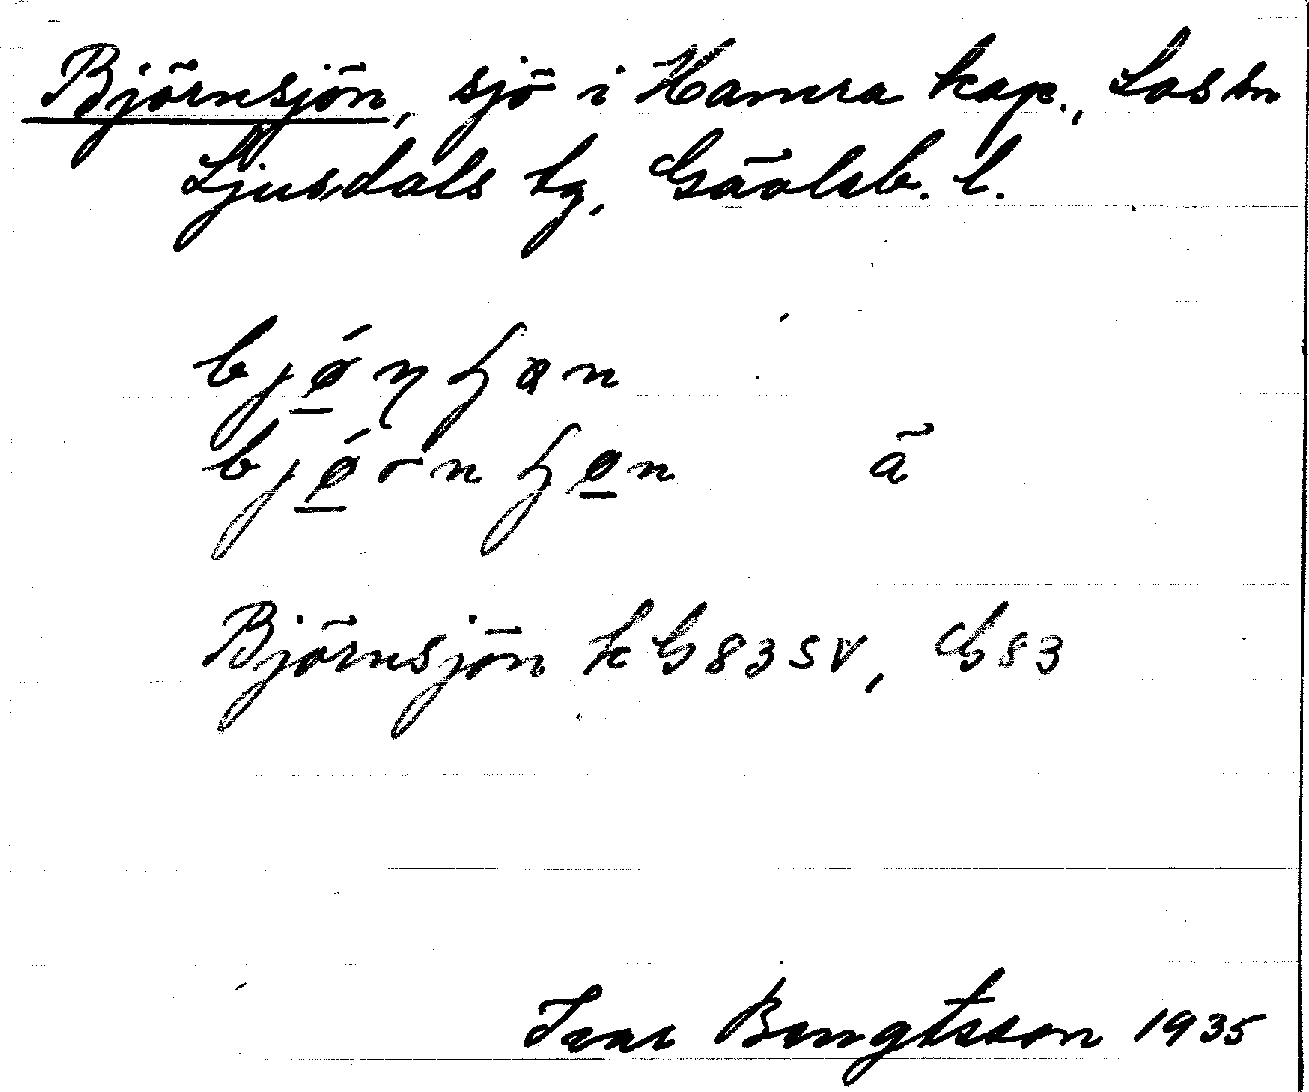 Björnsjön, sjö i Hamra kap., Los sn
Ljusdals tg, Gävleb. l.
bjǿ̲ɳʃɑn
bjǿ̲rnʃɵ̲n ā
Björnsjön k G 83 SV, G 83
Ivar Bengtsson 1935